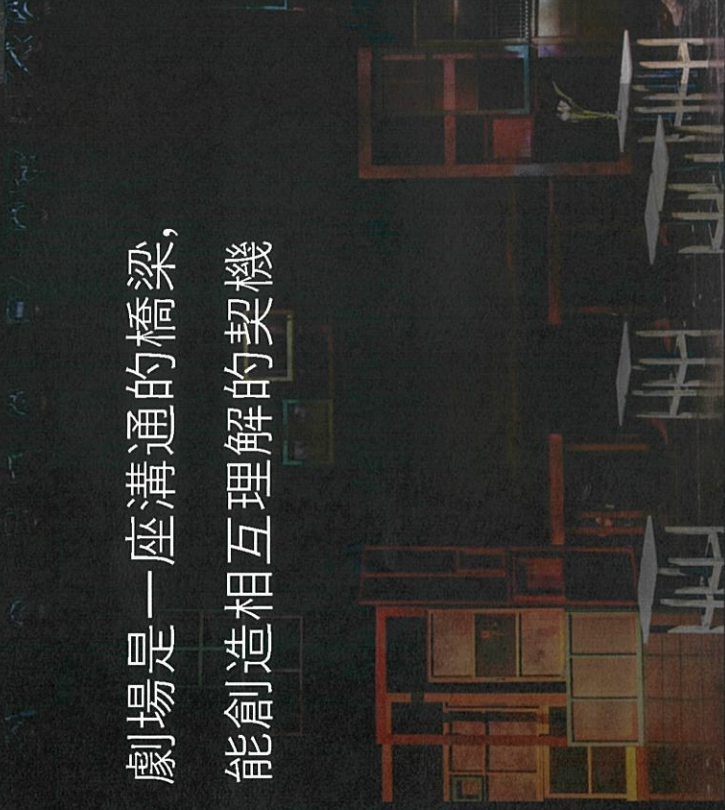 劇場是一座溝通的橋梁,
能創造相互理解的契機